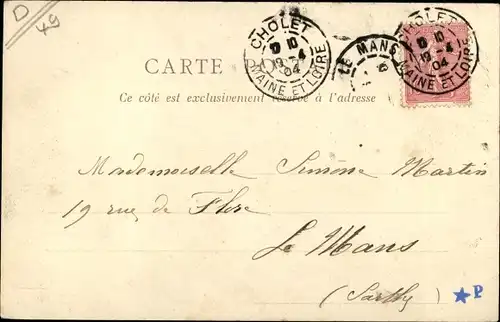 D
49
CHOLET
10
19-4
04
MAINE ET LOIRE
LE MANS
CHOLET
10
19-4
04
MAINE ET LOIRE
CARTE
Ce côté est exclusivement réservé à l'adresse
Mademoiselle Simone Martin
19 rue de Flore
Le Mans
(Sarthe)
★P